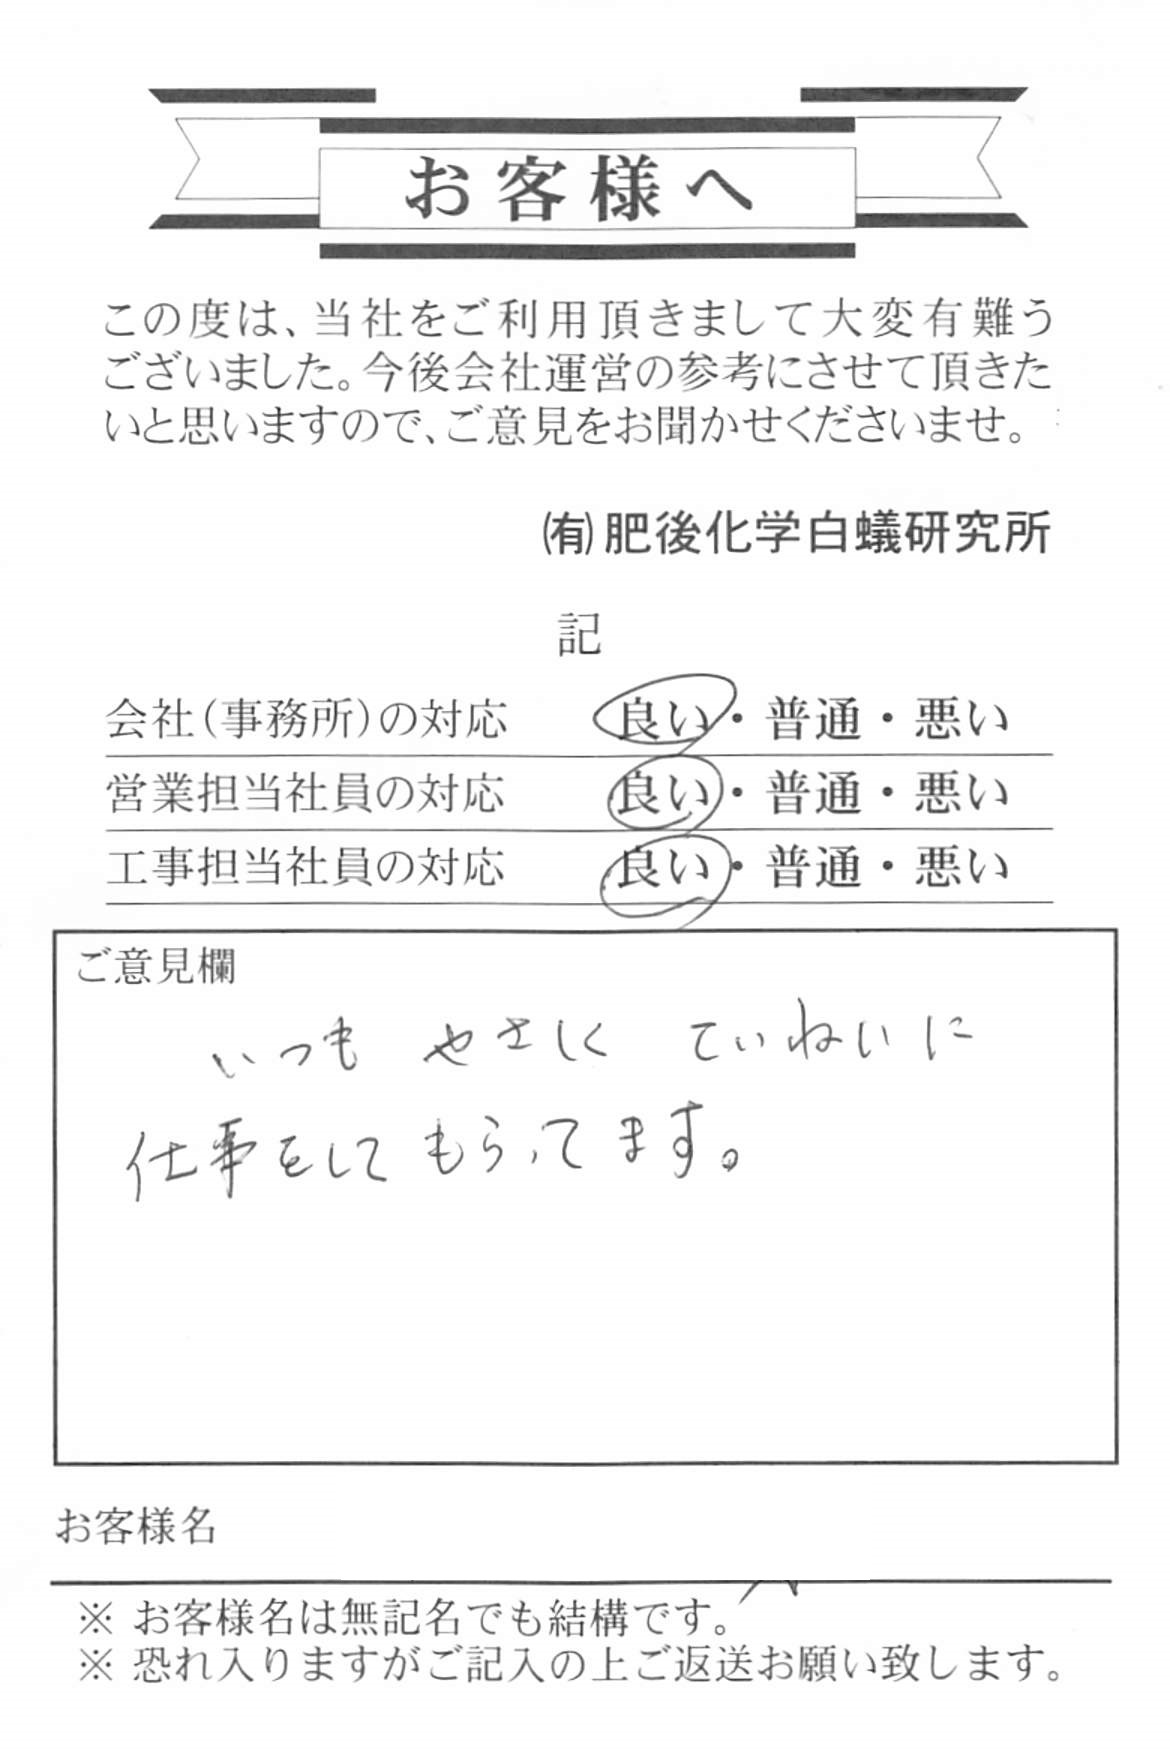 お客様へ
この度は、当社をご利用頂きまして大変有難う
ございました。今後会社運営の参考にさせて頂きた
いと思いますので、ご意見をお聞かせくださいませ。
㈲肥後化学白蟻研究所
記
会社（事務所）の対応 良い・普通・悪い
営業担当社員の対応 良い・普通・悪い
工事担当社員の対応 良い・普通・悪い
ご意見欄
いつも やさしく ていねいに
仕事をしてもらってます。
お客様名
※ お客様名は無記名でも結構です。
※ 恐れ入りますがご記入の上ご返送お願い致します。